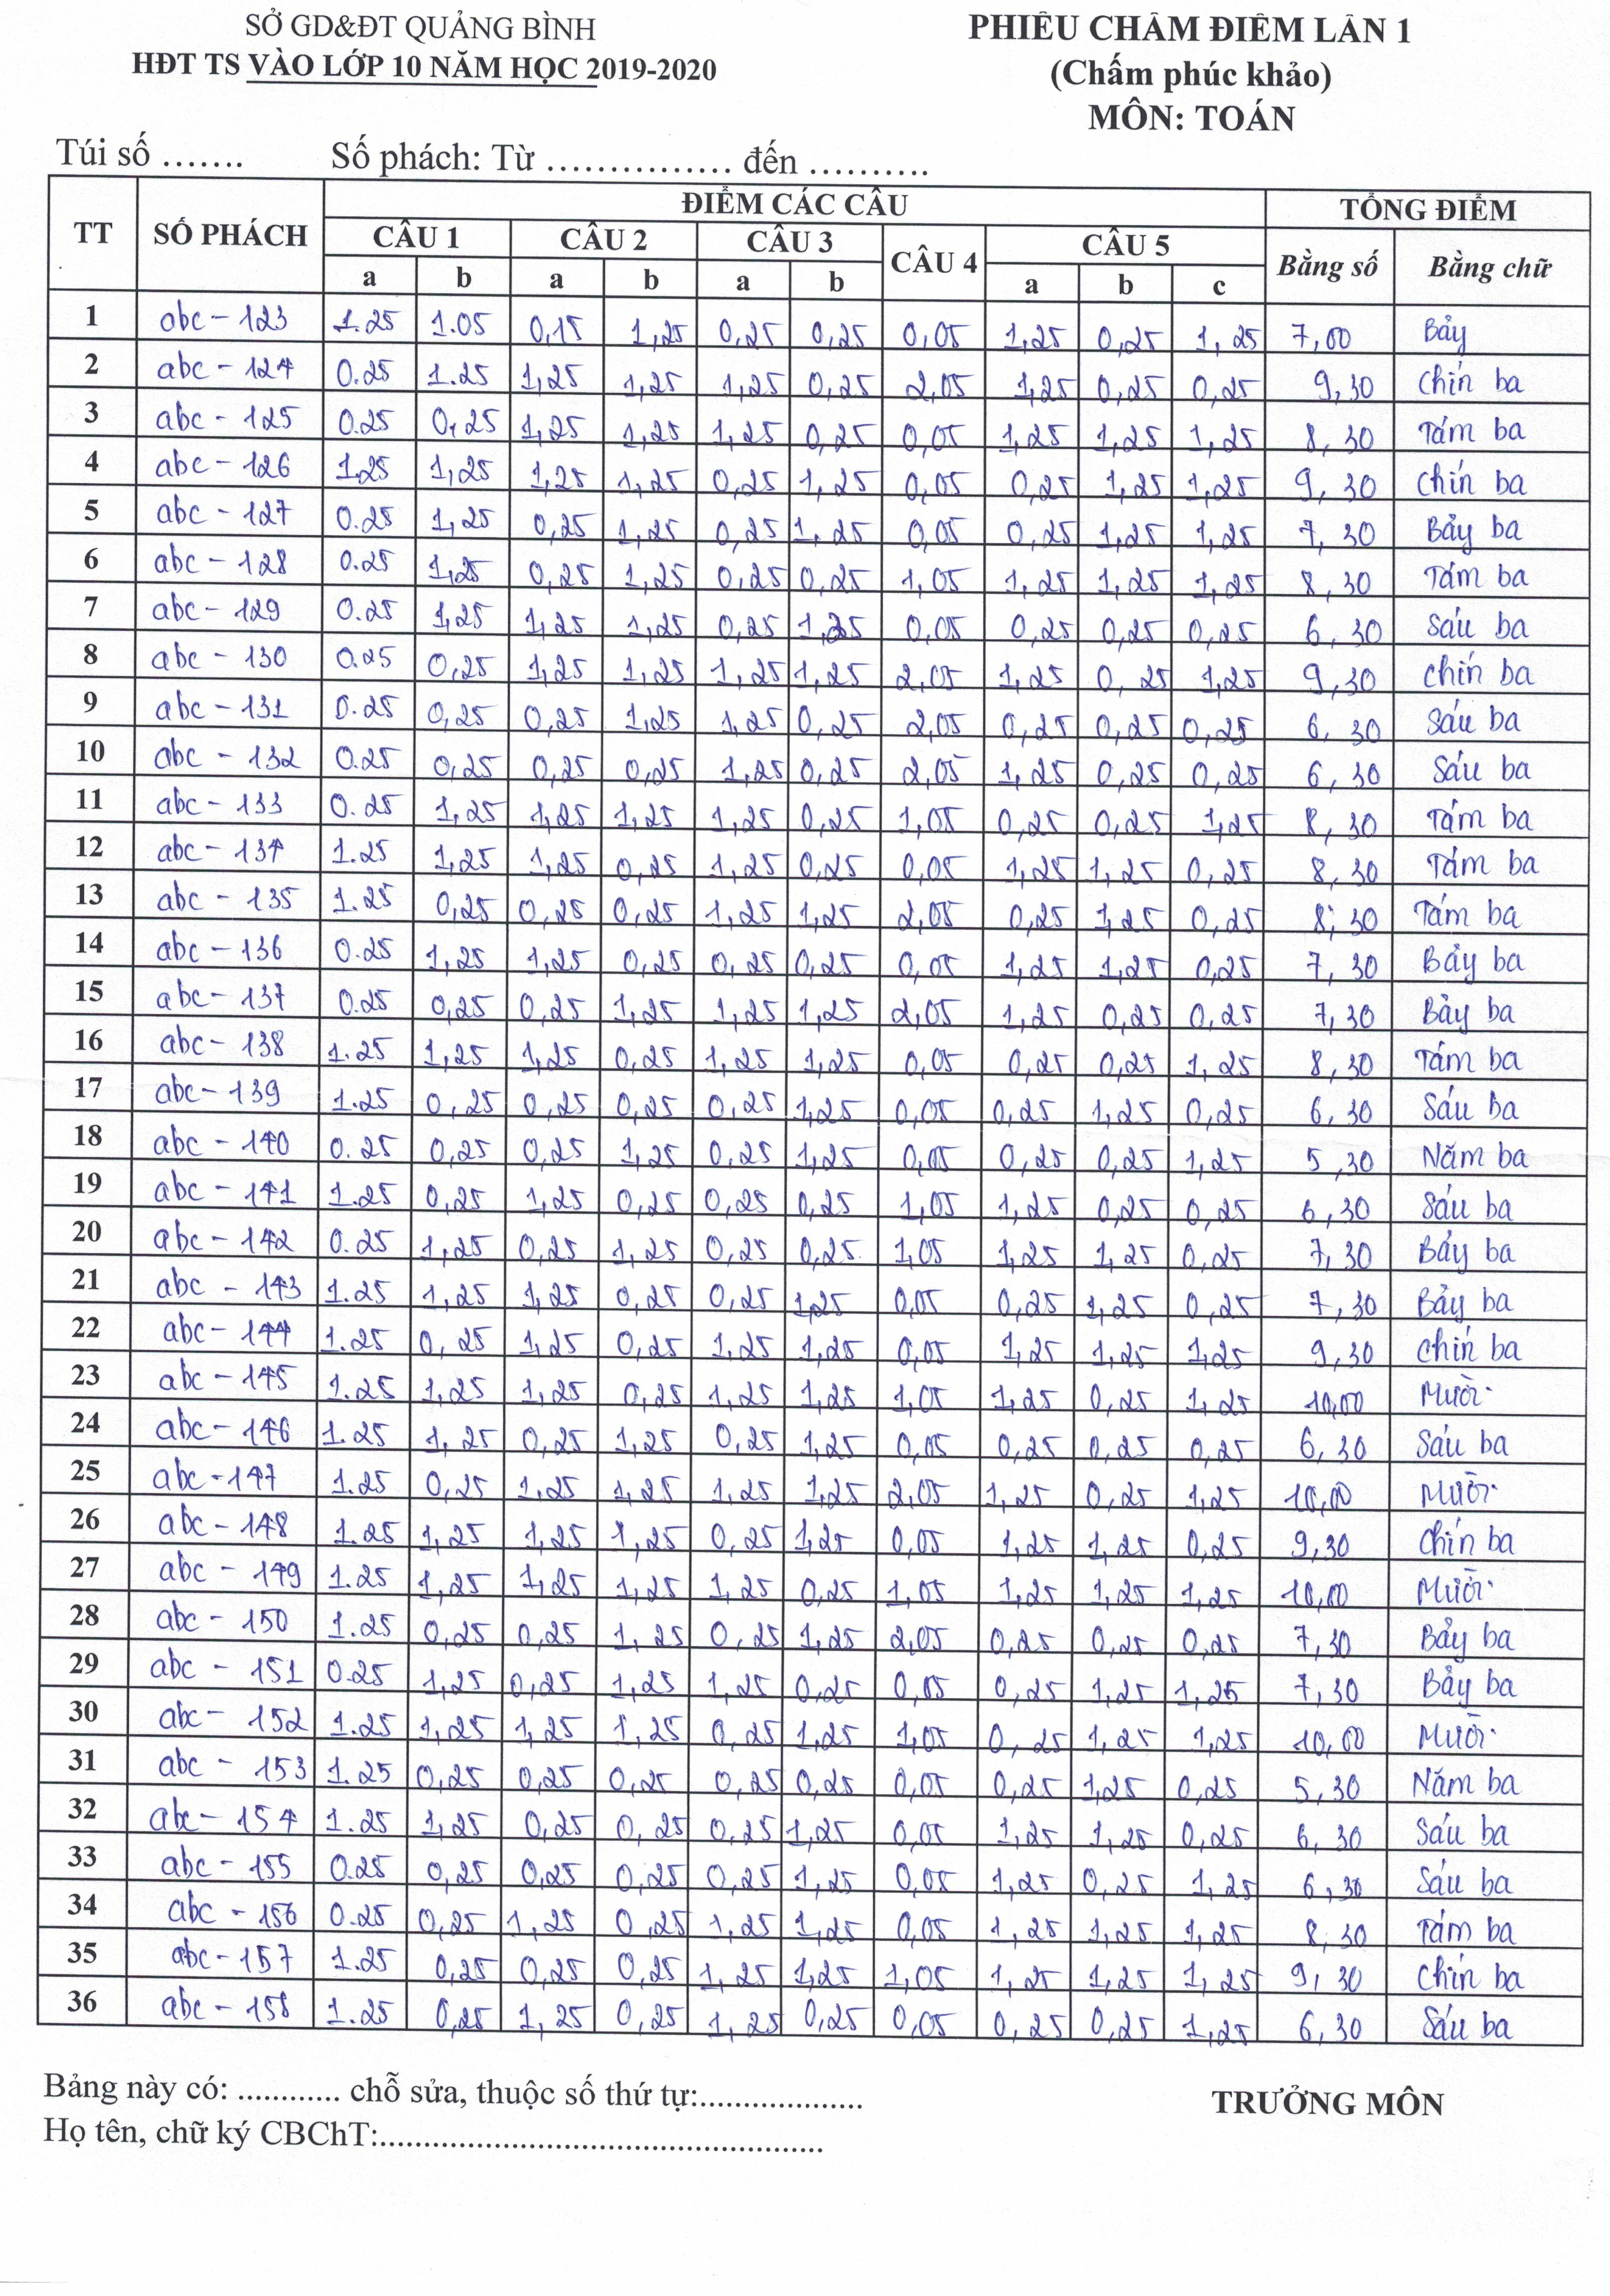 SỞ GD&ĐT QUẢNG BÌNH
HĐT TS VÀO LỚP 10 NĂM HỌC 2019-2020
PHIẾU CHẤM ĐIỂM LẦN 1
(Chấm phúc khảo)
MÔN: TOÁN
Túi số ....... Số phách: Từ ................ đến ..........
TT SỐ PHÁCH ĐIỂM CÁC CÂU TỔNG ĐIỂM
CÂU 1 CÂU 2 CÂU 3 CÂU 4 CÂU 5 Bằng số Bằng chữ
a b a b a b a b c
1 abc - 123 1.25 1.05 0,15 1,25 0,25 0,25 0,05 1,25 0,25 1,25 7,00 Bảy
2 abc - 124 0.25 1.25 1,25 1,25 1,25 0,25 2,05 1,25 0,25 0,25 9,30 Chín ba
3 abc - 125 0.25 0,25 1,25 1,25 1,25 0,25 0,05 1,25 1,25 1,25 8,30 Tám ba
4 abc - 126 1,25 1,25 1,25 1,25 0,25 1,25 0,05 0,25 1,25 1,25 9,30 Chín ba
5 abc - 127 0.25 1,25 0,25 1,25 0,25 1,25 0,05 0,25 1,25 1,25 7,30 Bảy ba
6 abc - 128 0.25 1,25 0,25 1,25 0,25 0,25 1,05 1,25 1,25 1,25 8,30 Tám ba
7 abc - 129 0.25 1,25 1,25 1,25 0,25 1,25 0,05 0,25 0,25 0,25 6,30 Sáu ba
8 abc - 130 0.25 0,25 1,25 1,25 1,25 1,25 2,05 1,25 0,25 1,25 9,30 Chín ba
9 abc - 131 0.25 0,25 0,25 1,25 1,25 0,25 2,05 0,25 0,25 0,25 6,30 Sáu ba
10 abc - 132 0.25 0,25 0,25 0,25 1,25 0,25 2,05 1,25 0,25 0,25 6,30 Sáu ba
11 abc - 133 0.25 1,25 1,25 1,25 1,25 0,25 1,05 0,25 0,25 1,25 8,30 Tám ba
12 abc - 134 1.25 1,25 1,25 0,25 1,25 0,25 0,05 1,25 1,25 0,25 8,30 Tám ba
13 abc - 135 1.25 0,25 0,25 0,25 1,25 1,25 2,05 0,25 1,25 0,25 8,30 Tám ba
14 abc - 136 0.25 1,25 1,25 0,25 0,25 0,25 0,05 1,25 1,25 0,25 7,30 Bảy ba
15 abc - 137 0.25 0,25 0,25 1,25 1,25 1,25 2,05 1,25 0,25 0,25 7,30 Bảy ba
16 abc - 138 1.25 1,25 1,25 0,25 1,25 1,25 0,05 0,25 0,25 1,25 8,30 Tám ba
17 abc - 139 1.25 0,25 0,25 0,25 0,25 1,25 0,05 0,25 1,25 0,25 6,30 Sáu ba
18 abc - 140 0.25 0,25 0,25 1,25 0,25 1,25 0,05 0,25 0,25 1,25 5,30 Năm ba
19 abc - 141 1.25 0,25 1,25 0,25 0,25 0,25 1,05 1,25 0,25 0,25 6,30 Sáu ba
20 abc - 142 0.25 1,25 0,25 1,25 0,25 0,25 1,05 1,25 1,25 0,25 7,30 Bảy ba
21 abc - 143 1.25 1,25 1,25 0,25 0,25 1,25 0,05 0,25 1,25 0,25 7,30 Bảy ba
22 abc - 144 1.25 0,25 1,25 0,25 1,25 1,25 0,05 1,25 1,25 1,25 9,30 Chín ba
23 abc - 145 1.25 1,25 1,25 0,25 1,25 1,25 1,05 1,25 0,25 1,25 10,00 Mười
24 abc - 146 1.25 1,25 0,25 1,25 0,25 1,25 0,05 0,25 0,25 0,25 6,30 Sáu ba
25 abc - 147 1.25 0,25 1,25 1,25 1,25 1,25 2,05 1,25 0,25 1,25 10,00 Mười
26 abc - 148 1.25 1,25 1,25 1,25 0,25 1,25 0,05 1,25 1,25 0,25 9,30 Chín ba
27 abc - 149 1.25 1,25 1,25 1,25 1,25 0,25 1,05 1,25 1,25 1,25 10,00 Mười
28 abc - 150 1.25 0,25 0,25 1,25 0,25 1,25 2,05 0,25 0,25 0,25 7,30 Bảy ba
29 abc - 151 0.25 1,25 0,25 1,25 1,25 0,25 0,05 0,25 1,25 1,25 7,30 Bảy ba
30 abc - 152 1.25 1,25 1,25 1,25 0,25 1,25 1,05 0,25 1,25 1,25 10,00 Mười
31 abc - 153 1.25 0,25 0,25 0,25 0,25 0,25 0,05 0,25 1,25 0,25 5,30 Năm ba
32 abc - 154 1.25 1,25 0,25 0,25 0,25 1,25 0,05 1,25 1,25 0,25 6,30 Sáu ba
33 abc - 155 0.25 0,25 0,25 0,25 0,25 1,25 0,05 1,25 0,25 1,25 6,30 Sáu ba
34 abc - 156 0.25 0,25 1,25 0,25 1,25 1,25 0,05 1,25 1,25 1,25 8,30 Tám ba
35 abc - 157 1.25 0,25 0,25 0,25 1,25 1,25 1,05 1,25 1,25 1,25 9,30 Chín ba
36 abc - 158 1.25 0,25 1,25 0,25 1,25 0,25 0,05 0,25 0,25 1,25 6,30 Sáu ba
Bảng này có: ............ chỗ sửa, thuộc số thứ tự:...................
TRƯỞNG MÔN
Họ tên, chữ ký CBChT:..................................................